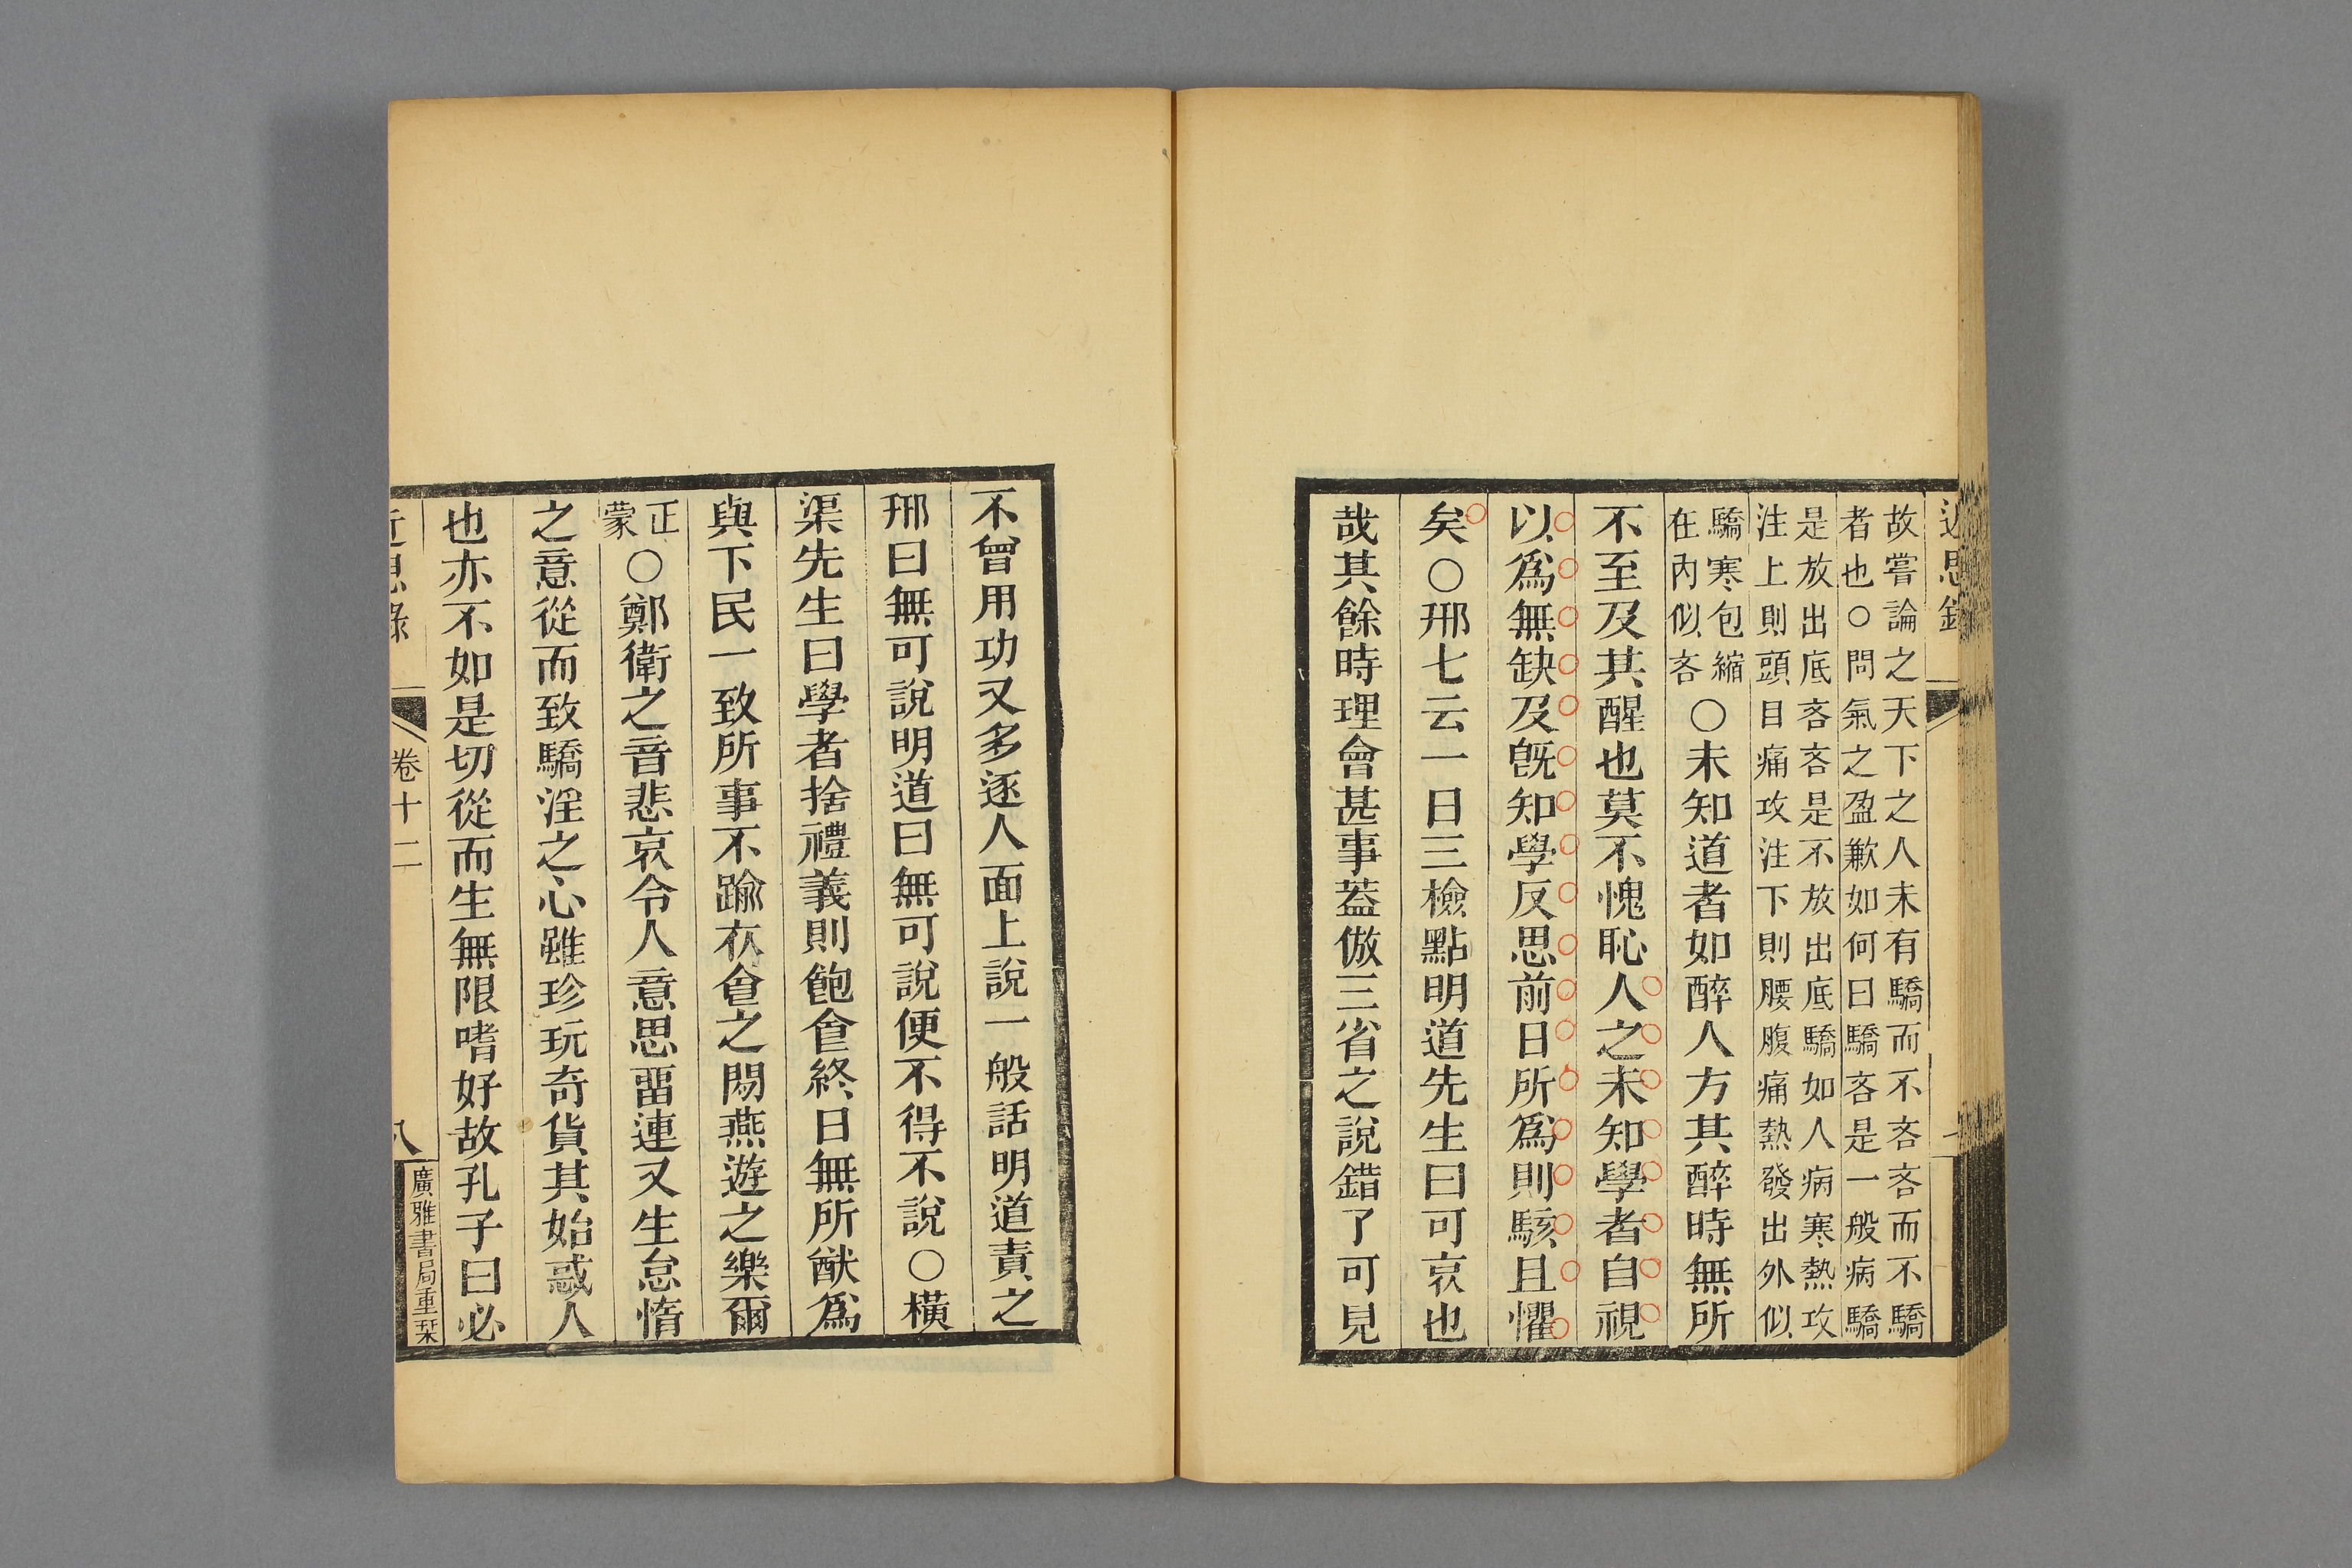 近思錄
故嘗論之天下之人未有驕而不吝吝而不驕
者也○問氣之盈歉如何曰驕吝是一般病驕
是放出底吝吝是不放出底驕如人病寒熱攻
注上則頭目痛攻注下則腰腹痛熱發出外似
驕寒包縮
在內似吝
○未知道者如醉人方其醉時無所
不至及其醒也莫不愧恥人之未知學者自視
以爲無缺及旣知學反思前日所爲則駭且懼
矣○邢七云一日三檢點明道先生曰可哀也
哉其餘時理會甚事葢倣三省之說錯了可見
不曾用功又多逐人面上說一般話明道責之
邢曰無可說明道曰無可說便不得不說○橫
渠先生曰學者捨禮義則飽食終日無所猷爲
與下民一致所事不踰衣食之閒燕遊之樂爾
正
蒙
○鄭衛之音悲哀令人意思畱連又生怠惰
之意從而致驕淫之心雖珍玩奇貨其始惑人
也亦不如是切從而生無限嗜好故孔子曰必
近思錄
卷十二
八
廣雅書局重栞